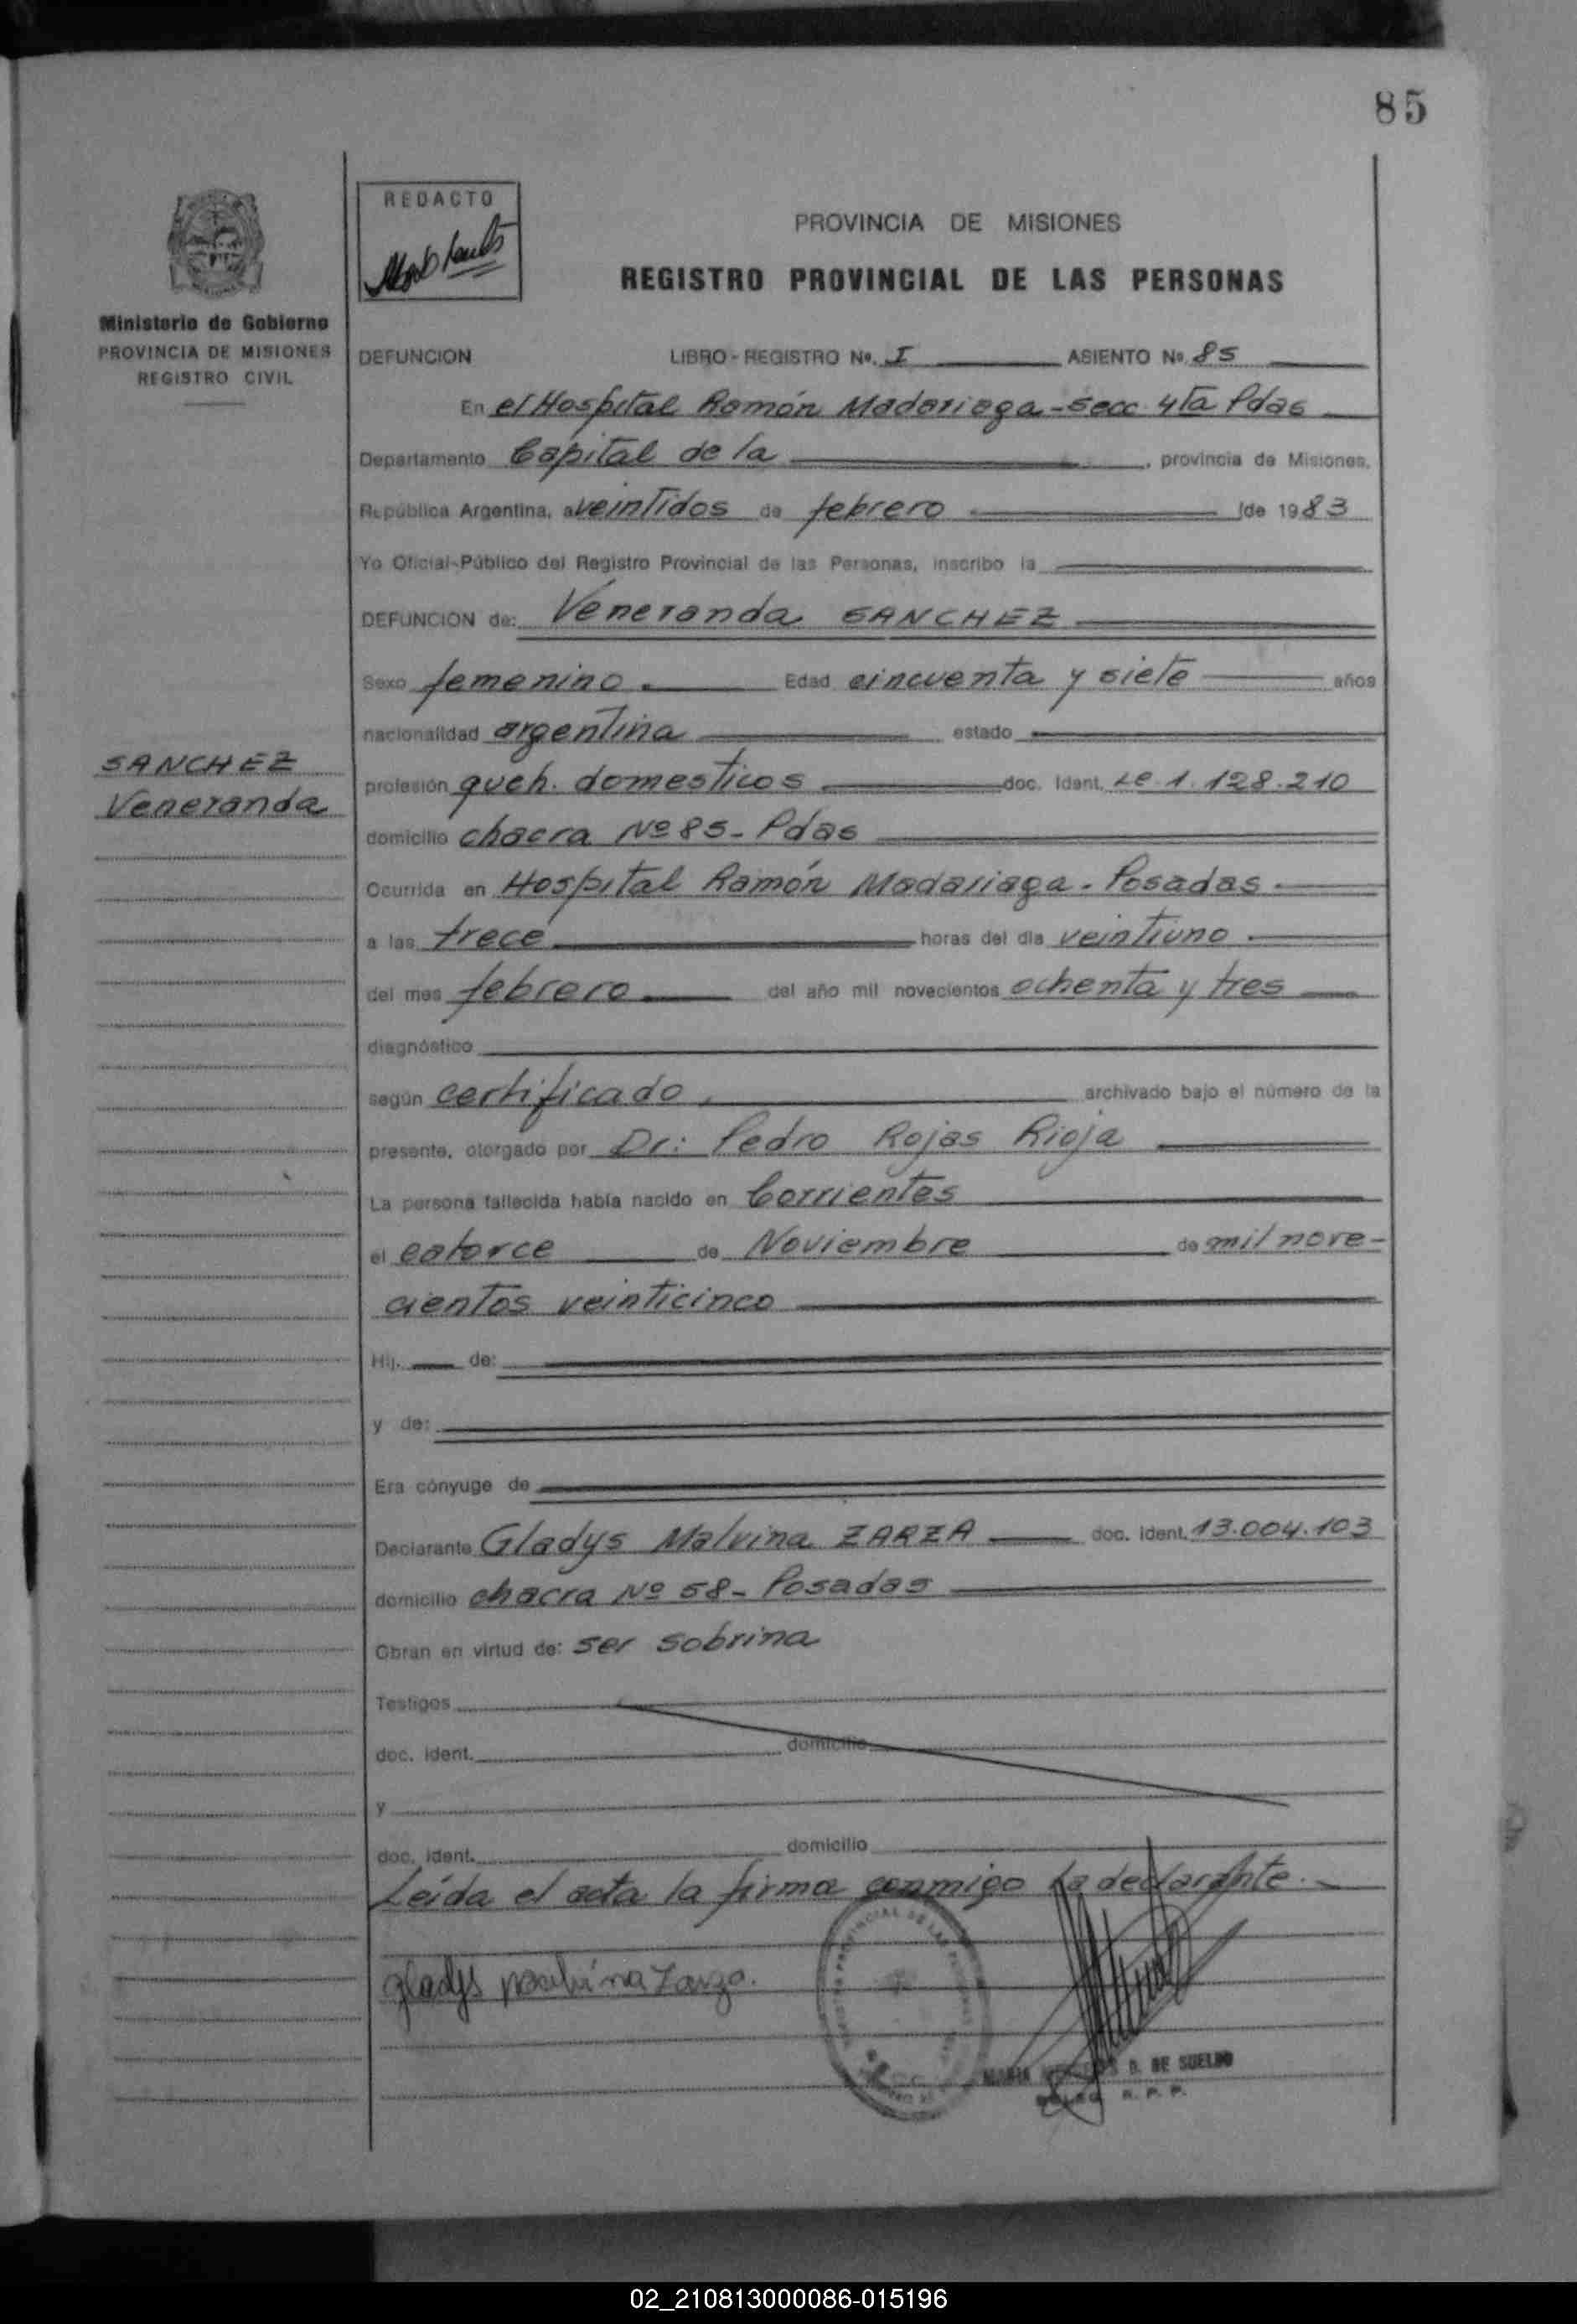 85
REDACTO
PROVINCIA DE MISIONES
REGISTRO PROVINCIAL DE LAS PERSONAS
Ministerio de Gobierno
PROVINCIA DE MISIONES
REGISTRO CIVIL
DEFUNCION LIBRO - REGISTRO No. I ASIENTO No 85
En el Hospital Ramón Madariaga - Secc. 4ta Pdas
Departamento Capital de la , provincia de Misiones,
República Argentina, a veintidos de febrero de 1983
Yo Oficial-Público del Registro Provincial de las Personas, inscribo la
DEFUNCION de: Veneranda SANCHEZ
Sexo femenino. Edad cincuenta y siete años
nacionalidad argentina estado
SANCHEZ
Veneranda
profesión queh. domesticos doc. Ident. Le. 1.128.210
domicilio chacra Nº 85 - Pdas
Ocurrida en Hospital Ramón Madariaga - Posadas
a las trece horas del dia veintiuno
del mes febrero del año mil novecientos ochenta y tres
diagnóstico
según certificado, archivado bajo el número de la
presente, otorgado por Dr: Pedro Rojas Rioja
La persona fallecida había nacido en Corrientes
el catorce de Noviembre de mil nove-
cientos veinticinco
Hij. de:
y de:
Era cónyuge de
Declarante Gladys Malvina ZARZA doc. ident. 13.004.103
domicilio chacra Nº 58 - Posadas
Obran en virtud de: ser sobrina
Testigos
doc. ident. domicilio
y
doc. ident. domicilio
Leída el acta la firma conmigo la declarante.
gladys Zarza.
B. DE SUELDO
R. P. P.
02_210813000086-015196